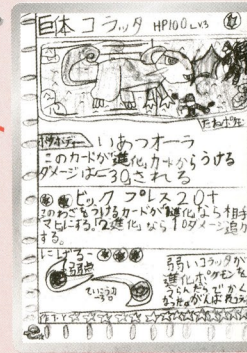 巨体コラッタ HP100 Lv.3
たねポケ
いあつオーラ
このカードが進化カードからうける
ダメージは-30される
ビックプレス20+
このわざをうけるカードが1進化なら相手
マヒにする。2進化なら10ダメージ追加
する。
にげる
弱点
ていこう力
弱いコラッタが
進化ポケモンを
うらんででかく
なった。がんばれコラッタ